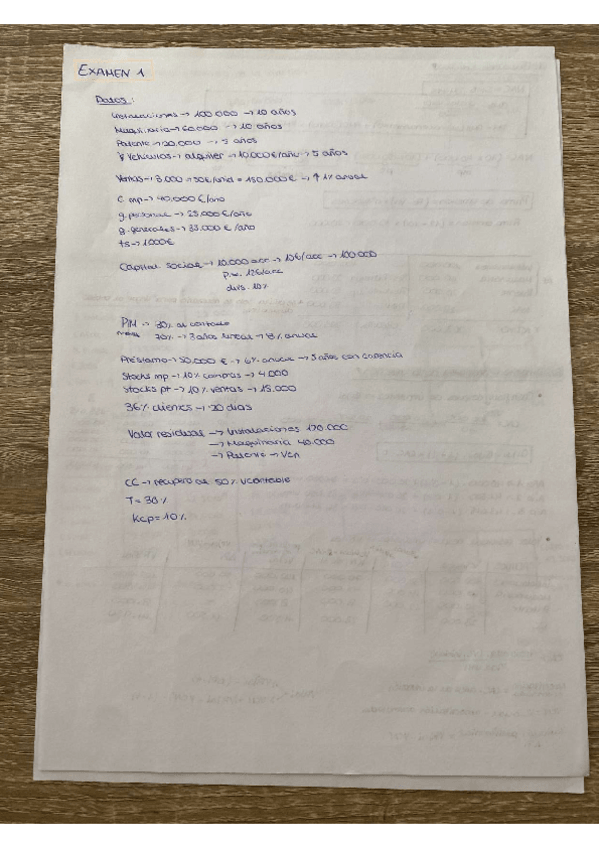 EXAMEN 1
Datos:
Instalaciones → 100.000 → 10 años
Maquinaria → 60.000 → 10 años
Patente → 20.000 → 5 años
Vehículos → alquiler → 10.000 €/año → 5 años
Ventas → 3.000 × 50 €/unid = 150.000 € → ↑ 1% anual
C mp → 40.000 €/año
g. personal → 25.000 €/año
g. generales → 35.000 €/año
ts → 1000 €
Capital social → 10.000 acc → 10€/acc → 100.000
p.m. 12€/acc
divs. 10%
PIM → 30% al contado
70% → 3 años lineal → 8% anual
Préstamo → 50.000 € → 6% anual → 5 años con carencia
Stocks mp → 10% compras → 4.000
Stocks pt → 10% ventas → 15.000
36% clientes → 20 días
Valor residual → Instalaciones 170.000
→ Maquinaria 40.000
→ Patente → Vcn
CC → recupero al 50% Vcontable
T = 30%
Kcp = 10%